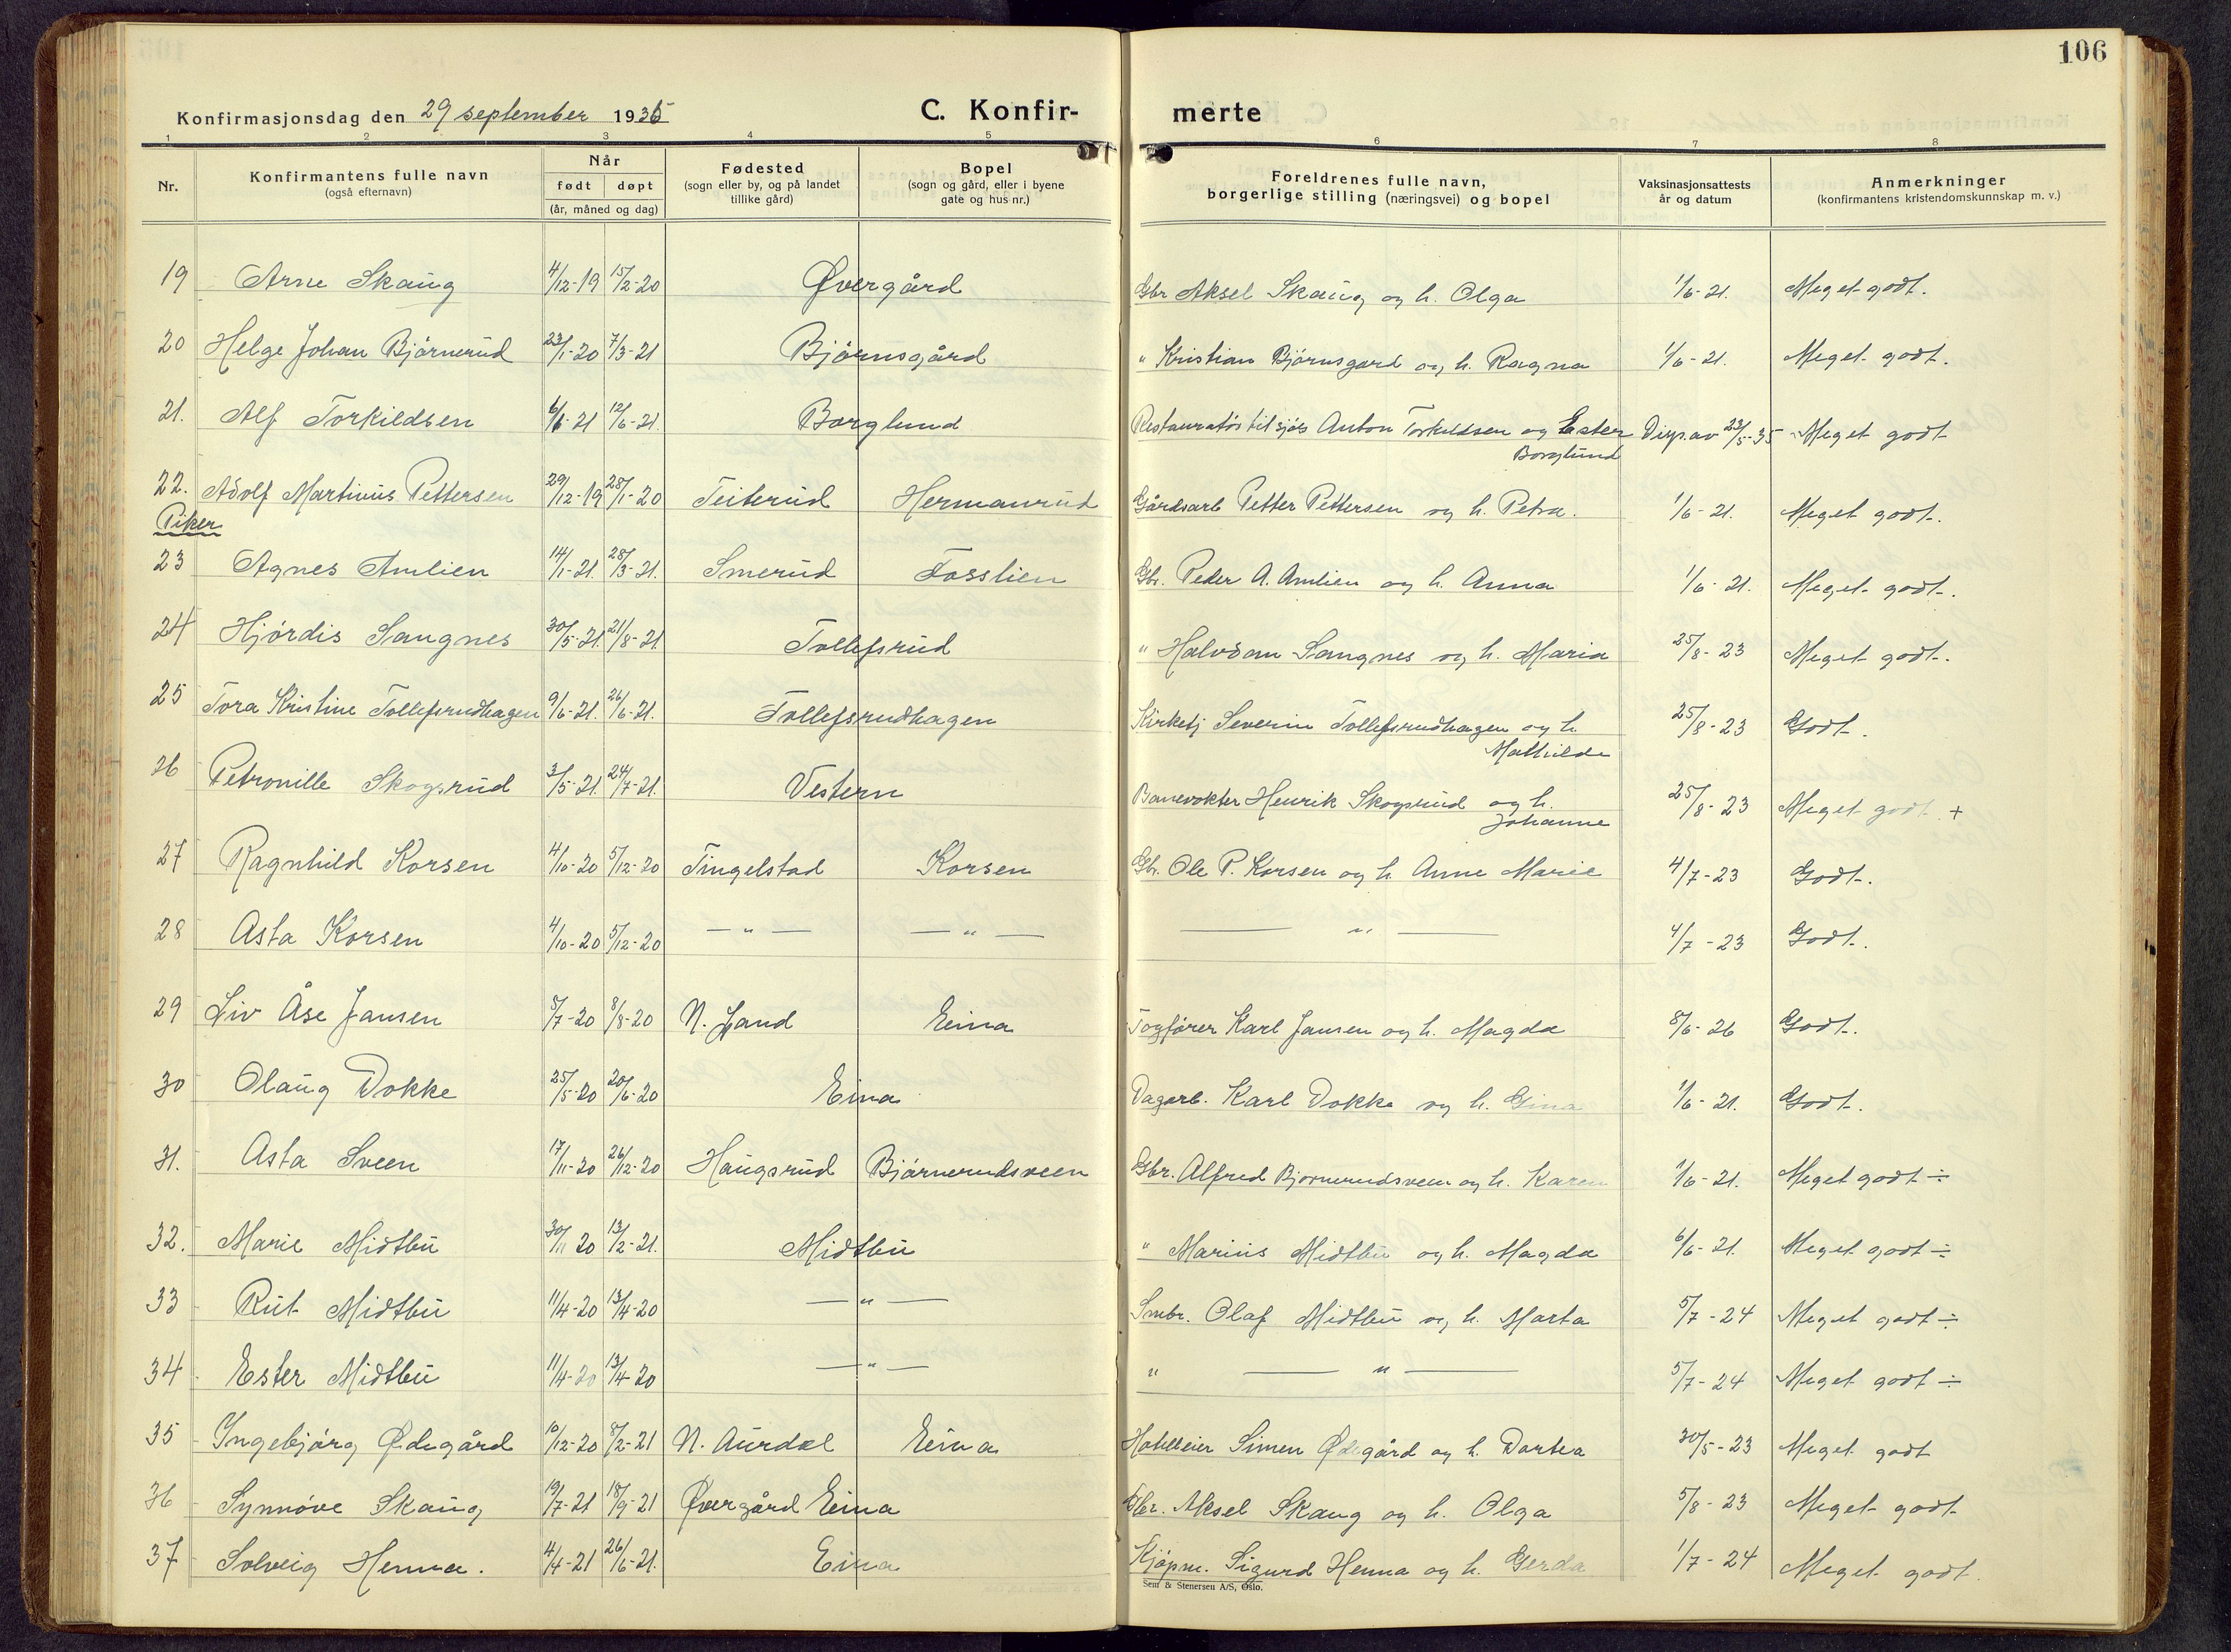 106
Konfirmasjonsdag den 29 september 1935 C. Konfir- merte
1 2 3 4 5 6 7 8
Nr. Konfirmantens fulle navn (også efternavn) Når født døpt (år, måned og dag) Fødested (sogn eller by, og på landet tillike gård) Bopel (sogn og gård, eller i byene gate og hus nr.) Foreldrenes fulle navn, borgerlige stilling (næringsvei) og bopel Vaksinasjonsattests år og datum Anmerkninger (konfirmantens kristendomskunnskap m. v.)
19 Arne Skaug 4/12-19 15/2-20 Øvergård Gbr Aksel Skaug og h. Olga 1/6-21. Meget godt.
20 Helge Johan Bjørnerud 23/1-20 7/3-21 Bjørnsgård " Kristian Bjørnsgard og h. Ragna 1/6-21. Meget godt.
21. Alf Torkildsen 6/1-21 12/6-21. Borglund Restauratør til sjøs Anton Torkildsen og Ester Borglund Disp. av 23/5-35 Meget godt
22. Adolf Martinius Pettersen 29/12-19 28/1-20 Teiterud Hermanrud Gårdsarb Petter Pettersen og h. Petra. 1/6-21. Meget godt.
Piker
23 Agnes Amlien 14/1-21. 28/3-21. Smerud Fosslien Gbr. Peder A. Amlien og h. Anna 1/6-21. Meget godt.
24 Hjørdis Sangnes 30/5-21. 21/8-21. Tollefsrud " Halvdan Sangnes og h. Maria 25/8-23 Meget godt.
25 Tora Kristine Tollefsrudhagen 9/6-21. 26/6-21. Tollefsrudhagen Kirketj Severin Tollefsrudhagen og h. Mathilde 25/8-23 Godt.
26 Petronille Skogsrud 3/5-21. 24/7-21. Vestern Banevokter Henrik Skogsrud og h. Johanne 25/8-23 Meget godt +
27 Ragnhild Korsen 4/10-20 5/12-20 Tingelstad Korsen Gbr. Ole P. Korsen og h. Anne Marie 4/7-23 Godt.
28 Asta Korsen 4/10-20 5/12-20 — " — — " — — " — 4/7-23 Godt.
29 Liv Åse Jansen 5/7-20 8/8-20 N. Land Eina Togfører Karl Jansen og h. Magda 8/6-26 Godt.
30 Olaug Dokke 25/5-20 20/6-20 Eina Dagarb. Karl Dokke og h. Gina 1/6-21. Godt.
31. Asta Sveen 17/11-20 26/12-20 Haugsrud Bjørnerudsveen Gbr. Alfred Bjørnerudsveen og h. Karen 1/6-21. Meget godt ÷
32. Marie Midtbu 30/11 20 13/2-21. Midtbu " Marius Midtbu og h. Magda 6/6-21. Meget godt ÷
33 Rut Midtbu 11/4-20 13/4-20 — " — Smbr. Olaf Midtbu og h. Marta 5/7-24 Meget godt ÷
34 Ester Midtbu 11/4-20 13/4-20 — " — " — " — 5/7-24 Meget godt ÷
35 Ingebjørg Ødegård 10/12-20 8/2-21 N. Aurdal Eina Hotelleier Simen Ødegård og h. Dortea 30/5-23 Meget godt
36 Synnøve Skaug 19/7-21 18/9-21 Øvergård Eina Gbr. Aksel Skaug og h. Olga 5/8-23 Meget godt.
37 Solveig Henna. 4/4-21 26/6-21. Eina Kjøpm. Sigurd Henna og h. Gerda 1/7-24 Meget godt.
Sem & Stenersen A/S, Oslo.